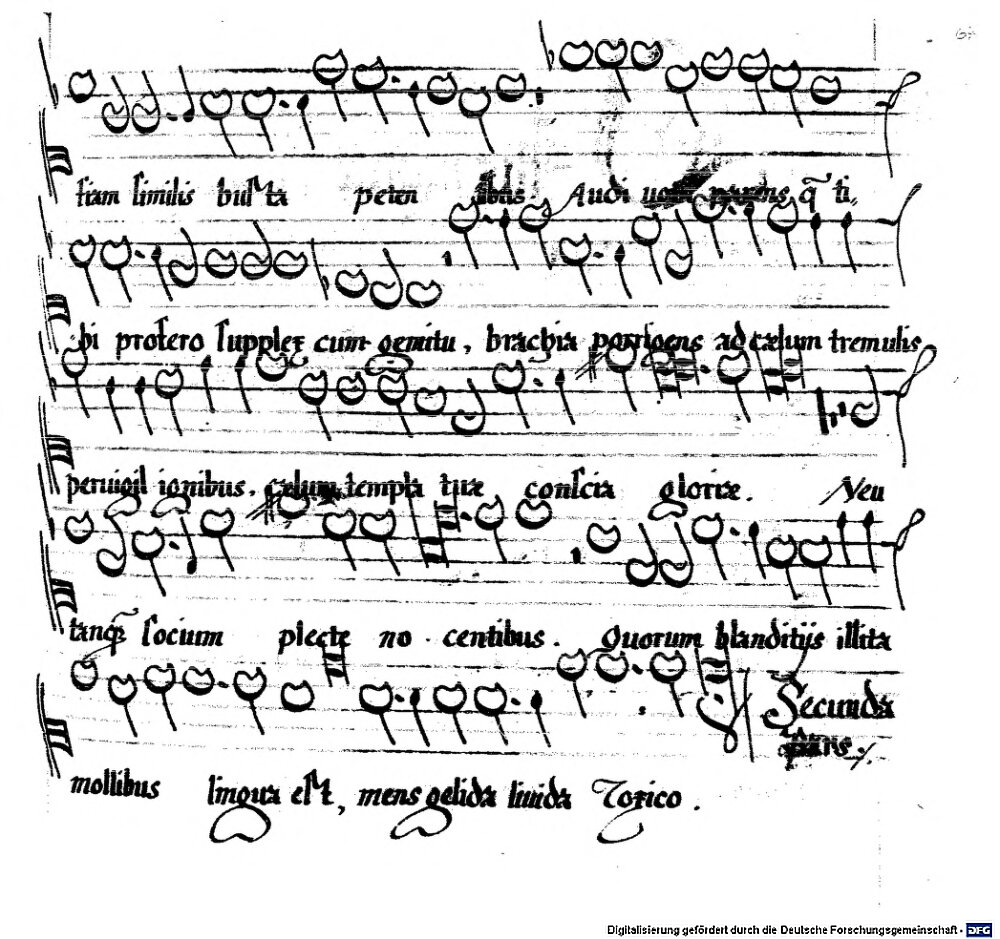 tiam similis busta peten tibus Audi uotum parens q̃ ti,,
bi profero supplex cum gemitu, brachia porrigens ad cælum tremulis
peruigil ignibus. cælum templa tuæ conscia gloriæ. Neu
tanq̃ socium plecte no centibus. Quorum blanditijs illita
Secunda
pars
mollibus lingua est, mens gelida liuida Toxico.
Digitalisierung gefördert durch die Deutsche Forschungsgemeinschaft - DFG